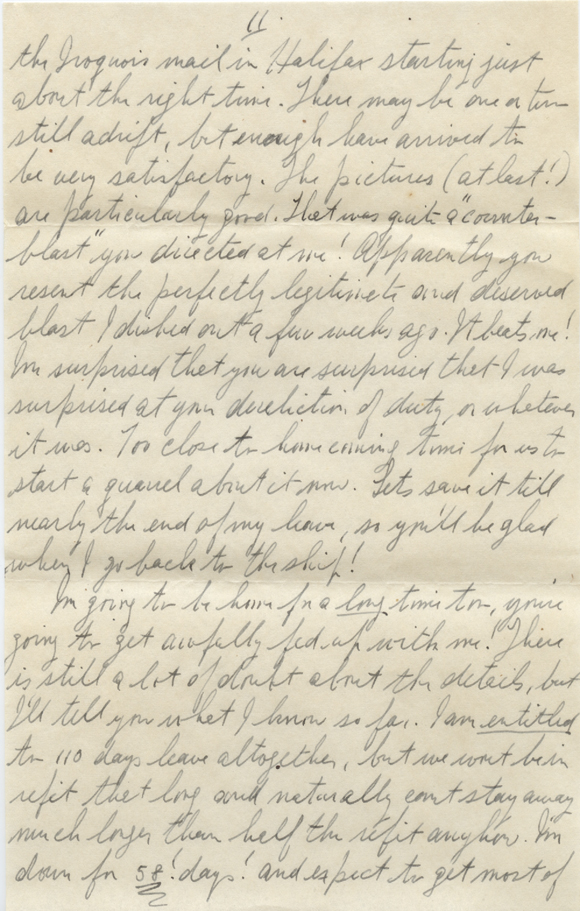 11
the Iroquois mail in Halifax starting just
about the right time. There may be one or two
still adrift, but enough have arrived to
be very satisfactory. The pictures (at last!)
are particularly good. That was quite a "counter-
blast" you directed at me! Apparently you
resent the perfectly legitimate and deserved
blast I dished out a few weeks ago. It beats me!
I'm surprised that you are surprised that I was
surprised at your dereliction of duty, or whatever
it was. Too close to home coming time for us to
start a quarrel about it now. Lets save it till
nearly the end of my leave, so you'll be glad
when I go back to the ship!
I'm going to be home for a long time too, you're
going to get awfully fed up with me! There
is still a lot of doubt about the details, but
I'll tell you what I know so far. I am entitled
to 110 days leave altogether, but we wont be in
refit that long and naturally cant stay away
much longer than half the refit anyhow. I'm
down for 58! days! and expect to get most of